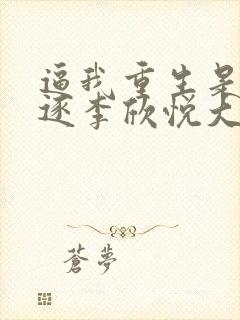 逼我重生是
逐李欣悦大
苍梦